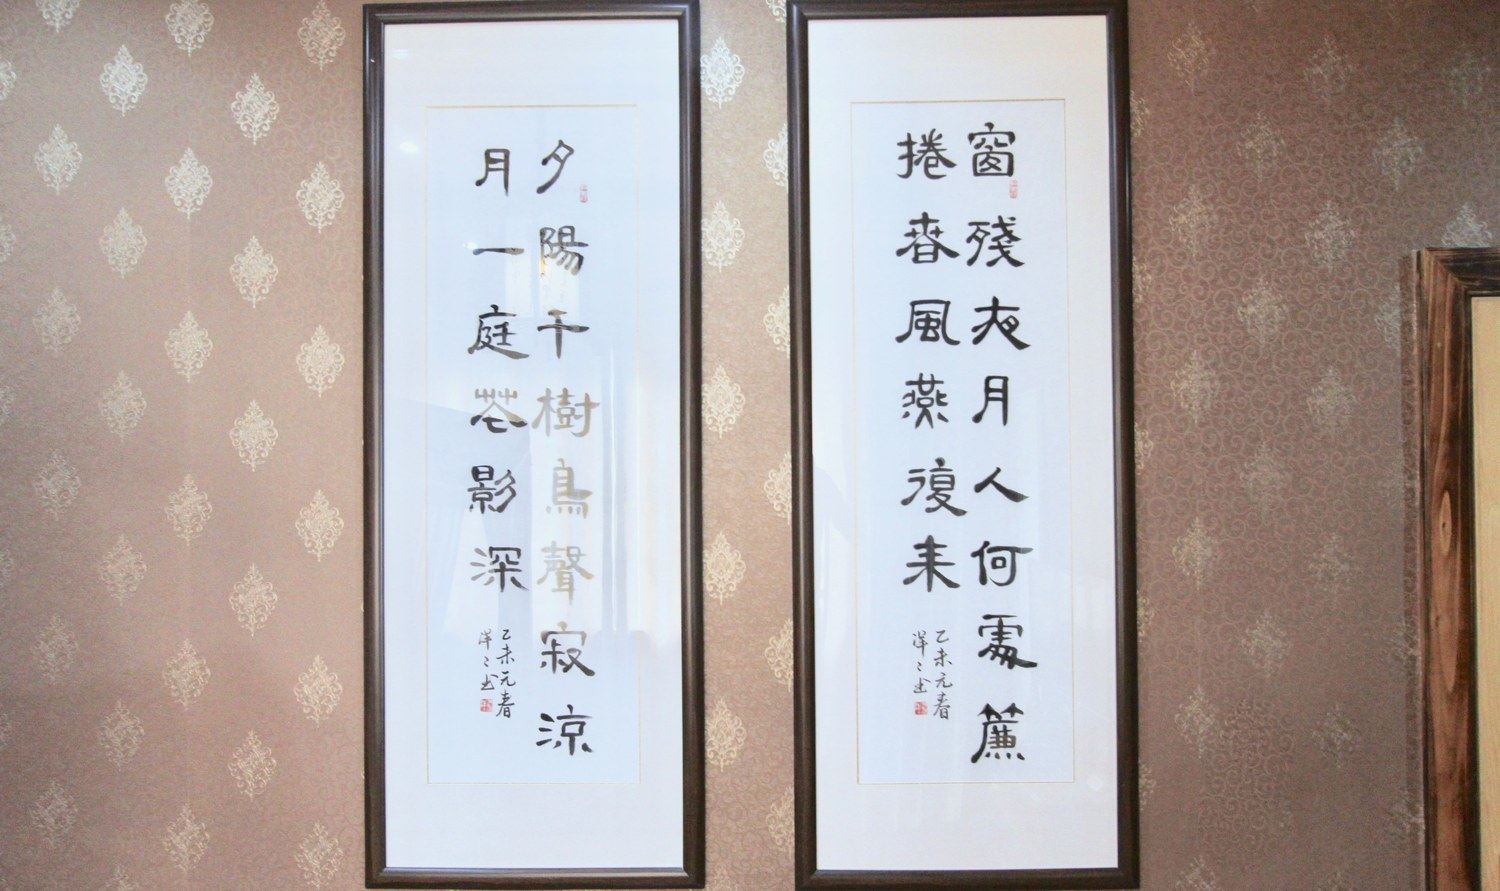 窗殘夜月人何處簾
捲春風燕復来
乙未元春
洋洋书
夕陽千樹鳥聲寂涼
月一庭花影深
乙未元春
洋洋书